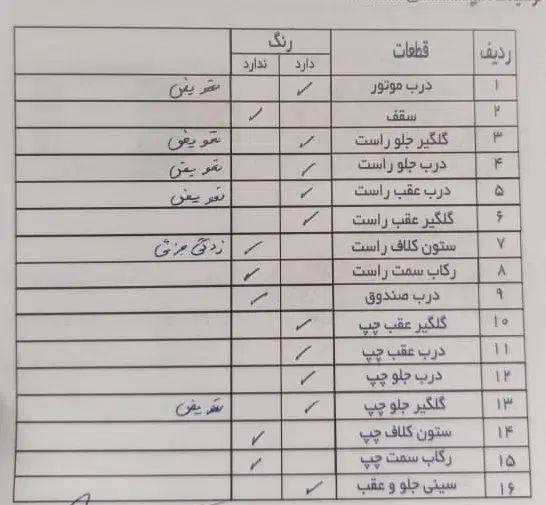 ردیف قطعات رنگ
دارد ندارد
۱ درب موتور ✓ تعویض
۲ سقف ✓
۳ گلگیر جلو راست ✓ تعویض
۴ درب جلو راست ✓ تعویض
۵ درب عقب راست ✓ تعویض
۶ گلگیر عقب راست ✓
۷ ستون کلاف راست ✓ زدگی جزئی
۸ رکاب سمت راست ✓
۹ درب صندوق ✓
۱۰ گلگیر عقب چپ ✓
۱۱ درب عقب چپ ✓
۱۲ درب جلو چپ ✓
۱۳ گلگیر جلو چپ ✓ تعویض
۱۴ ستون کلاف چپ ✓
۱۵ رکاب سمت چپ ✓
۱۶ سینی جلو و عقب ✓